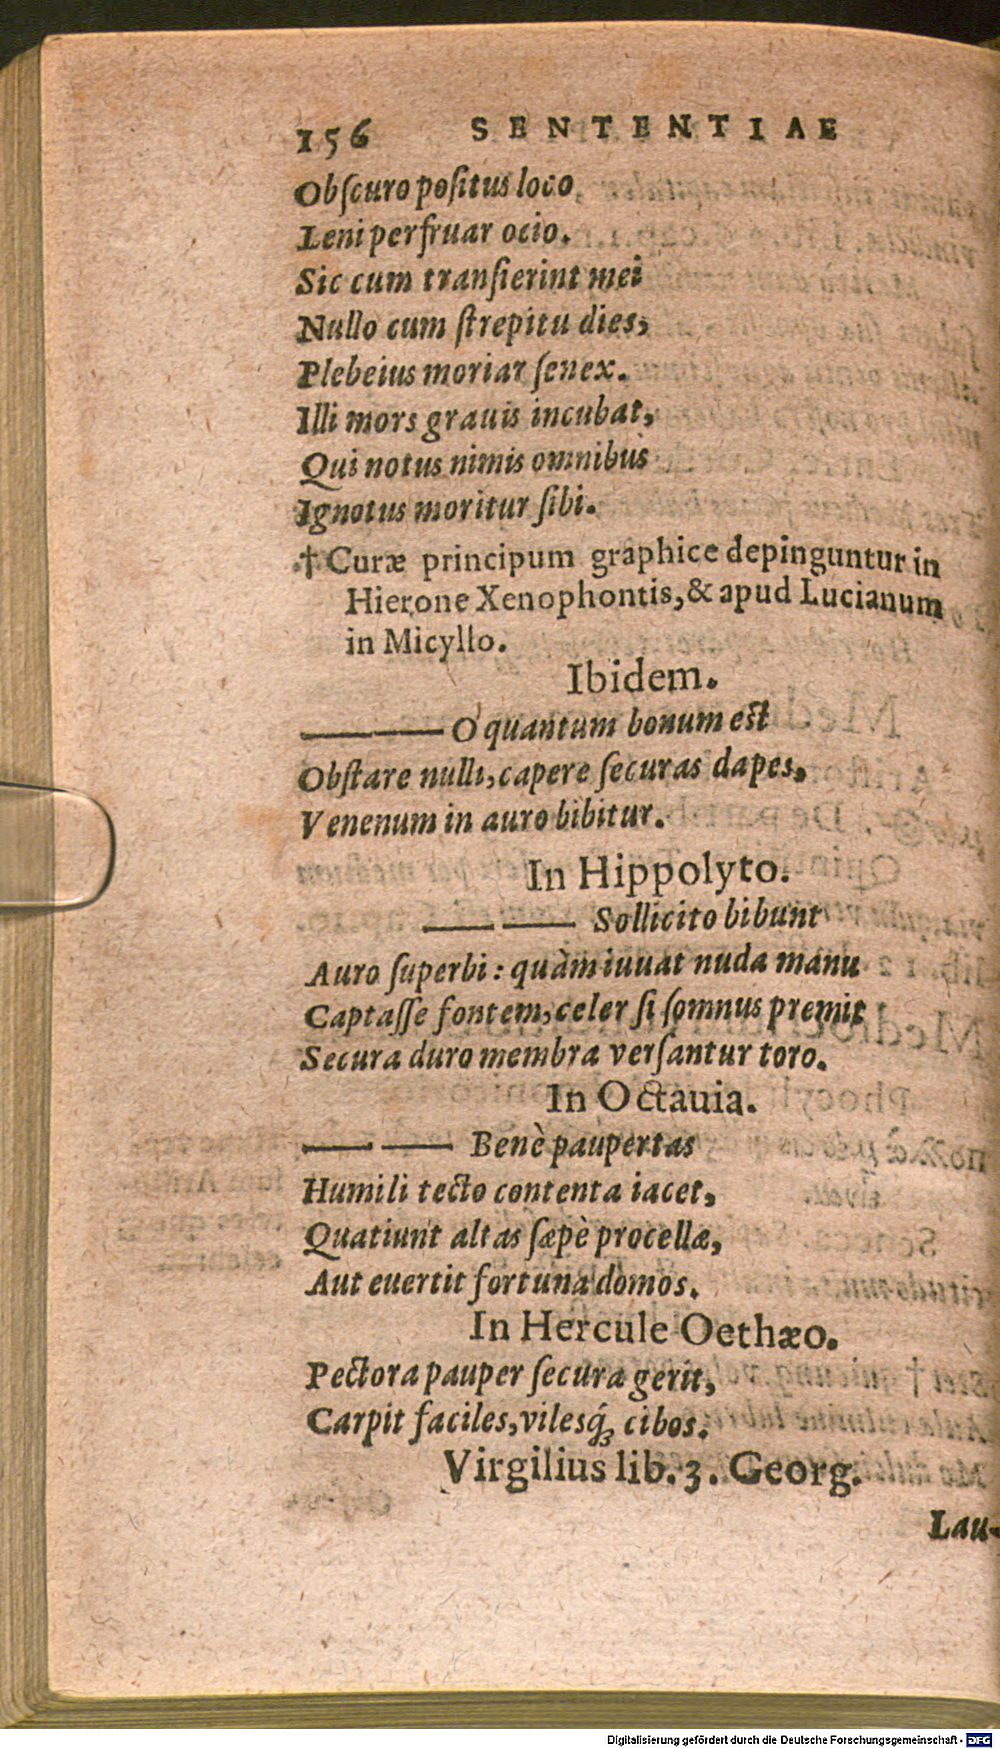 156 SENTENTIAE
Obſcuro poſitus loco
Leni perfruar ocio.
Sic cum tranſierint mei
Nullo cum ſtrepitu dies,
Plebeius moriar ſenex.
Illi mors grauis incubat,
Qui notus nimis omnibus
Ignotus moritur ſibi.
† Curæ principum graphice depinguntur in
Hierone Xenophontis, & apud Lucianum
in Micyllo.
Ibidem.
—— —— O quantum bonum eſt
Obſtare nulli, capere ſecuras dapes,
Venenum in auro bibitur.
In Hippolyto.
—— —— Sollicito bibunt
Auro ſuperbi: quàm iuuat nuda manu
Captaſſe fontem, celer ſi ſomnus premit
Secura duro membra verſantur toro.
In Octauia.
—— —— Benè paupertas
Humili tecto contenta iacet,
Quatiunt altas ſæpè procellæ,
Aut euertit fortuna domos.
In Hercule Oethæo.
Pectora pauper ſecura gerit,
Carpit faciles, vilesq́ꝫ cibos.
Virgilius lib. 3. Georg.
Lau-
Digitalisierung gefördert durch die Deutsche Forschungsgemeinschaft - DFG